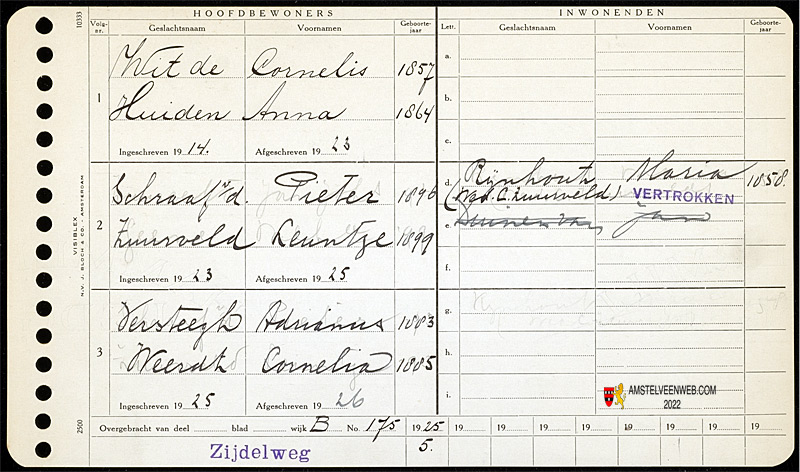 HOOFDBEWONERS
Volg-
nr.
Geslachtsnaam
Voornamen
Geboorte-
jaar
1
Wit de Cornelis 1857
Huiden Anna 1864
Ingeschreven 19 14. Afgeschreven 19 23
2
Schraaf v/d. Pieter 1896
Zuurveld Leuntje 1899
Ingeschreven 19 23 Afgeschreven 19 25
3
Versteegh Adrianus 1883
Weerdt Cornelia 1885
Ingeschreven 19 25 Afgeschreven 19 26
INWONENDEN
Lett.
Geslachtsnaam
Voornamen
Geboorte-
jaar
a.
b.
c.
d. Rijnhout Maria 1858.
(Wed. C. Zuurveld) VERTROKKEN
e. Jan
f.
g.
h.
i.
Overgebracht van deel blad wijk B No. 175 19 25 19 19 19 19 19 19 19 19
5.
Zijdelweg
10333
VISIBLEX
N.V. J. BLOCH & CO. - AMSTERDAM
2500
AMSTELVEENWEB.COM
2022